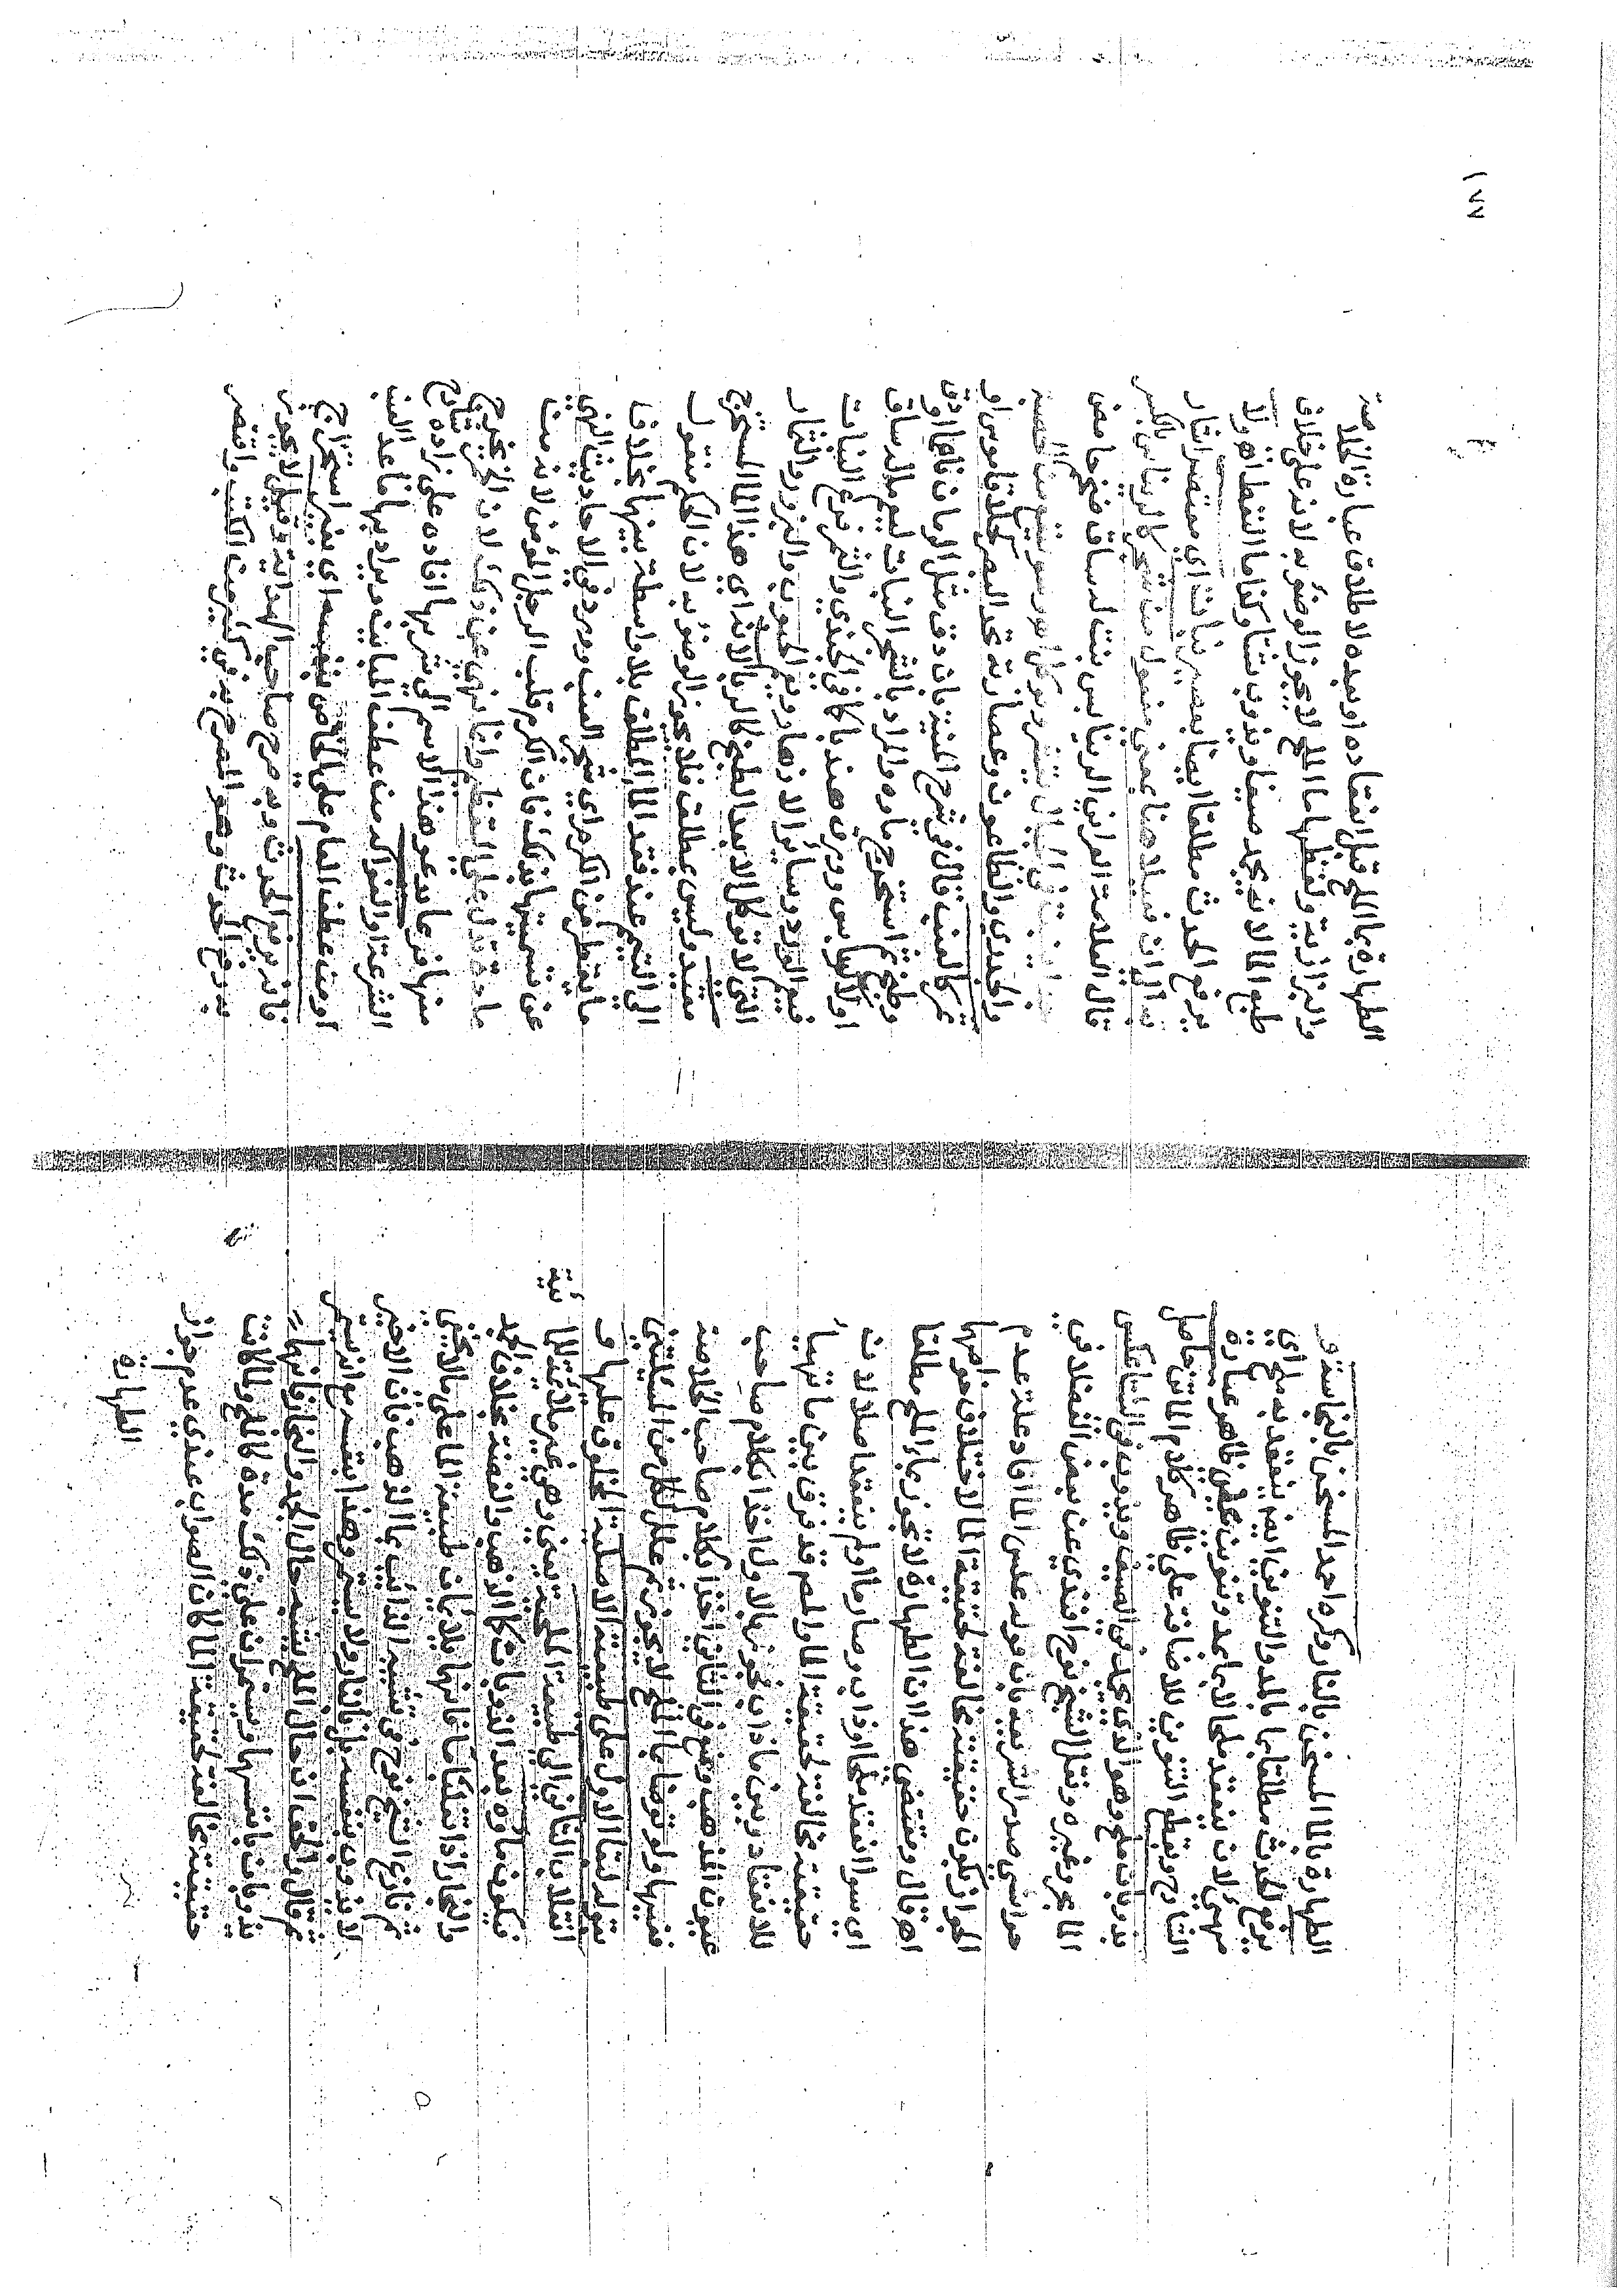 الطهارة بالماء المسخن بالنار وكره احمد المسخن بالنجاسة و
يرفع الحدث مطلقا بما بالمد والتنوين ينعقد به ملح اي
مهيئ لان ينعقد ملحا لا بماء مد وتنوين ظاهر عبارة
الشارح وبقطع التنوين للاضافة علي ظاهر كلام الماتن حاصل
بذوبان ملح وهو الذي يجمد في الصيف ويذوب في الشتا عكس
الماء بحر وغيره ونقل الشيخ نوح افندي عن بعض الفضلا في
حواشي صدر الشريعة بان قوله عكس الماء افاد علة عدم
الجواز بكون حقيقته مخالفة لحقيقة الما لاختلاف خواصها
اهـ قال ومقتضي هذا ان الطهارة لا تجوز بماء الملح مطلقا
اي سوا انعقد ملحا او ذاب وصار ماء او لم ينعقد اصلا لان
حقيقته مخالفة لحقيقة الماء والمص قد فرق بين ما تهيأ
للانعقاد وبين ما ذاب فجوز بالاول اخذا بكلام صاحب
عيون المذهب ومنع في الثاني اخذا بكلام صاحب الخلاصة
فيها ولو توضأ بماء الملح لا يجوز ثم علل لكل من المسئلتين
بقوله لبقاء الاول على طبيعته الاصلية المخلوق عليها و
انقلاب الثاني الي طبيعة الملحية يعني وهي غير ملائمة للماء
فيكون ماؤه بعد الذوبان كالذهب والفضة بخلاف الجمد
والبخار اذا انقلبا ماء فانهما طبيعة الماء علي ما لا يخفي
ثم نازع الشيخ نوح في تشبيه الذائب بماء الذهب فان الاخير
لا يذوب بنفسه بل بالنار ولا يستمر وهذا بنفسه مع انه يستمر
ثم قال والحق ان حال الملح يشبه حال الجمد والبخار فانهما
يذوبان بانفسهما ويستمران علي ذلك مدة فالملح ولما كانت
حقيقته مخالفة لحقيقة الما كان الصواب عندي عدم جواز
الطهارة
١٧٧
الطهارة بماء الملح قبل انعقاده او بعده لاطلاق عبارة الخلاصة
والبزازية ولفظها ماء الملح لا يجوز الوضؤ به لانه علي خلاف
طبع الماء لانه يجمد صيفا ويذوب شتا وكذا ماء النفط اهـ ولا
يرفع الحدث مطلقا ايضا بعصير نبات اي معتصر اشار
به الي ان فعيلا هنا بمعني مفعول من شجر كالريباس بالكسر
قال العلامة الريباس نبت له ساق حامض
والجدري والطاعون وعصارته تحد البصر كحلا قاموس او
ثمر كالعنب قال في شرح المنية بان دق مثل الرمان ناعما او دق
وطبخ ثم استخرج ماؤه والمراد بالشجر النبات ليعم ما له ساق
او لا كالريباس هندبا كما في والثمر فرع النبات
فيعم الورد وسائر الازهار ويعم الحبوب والبزور والثمار
التي لا تؤكل الا بعد الطبخ كالدبا لانه اي هذا الماء المستخرج
مقيد وليس بمطلق فلا يجوز الوضؤ به لان الحكم منقول
الي التيمم عند فقد الماء المطلق بلا واسطة بينهما بخلاف
ما يقطر من الكرم اي شجر العنب وورد في الاحاديث النهي
عن تسميتها بذلك فان الكرم قلب الرجل المؤمن لانه
دل علي وانما نهي عن ذلك لان الخمر
منها هذا الاسم الي شربها افاده علي زاده
الشرعة او الفواكه من عطف المباين ويراد بها ما عدا العنب
او من عطف العام علي الخاص بنفسه اي بغير استخراج
فانه يرفع الحدث وبه صرح صاحب الهداية وقيل لا يجوز
به رفع الحدث وهو المصرح به في كثير من الكتب واقتصر